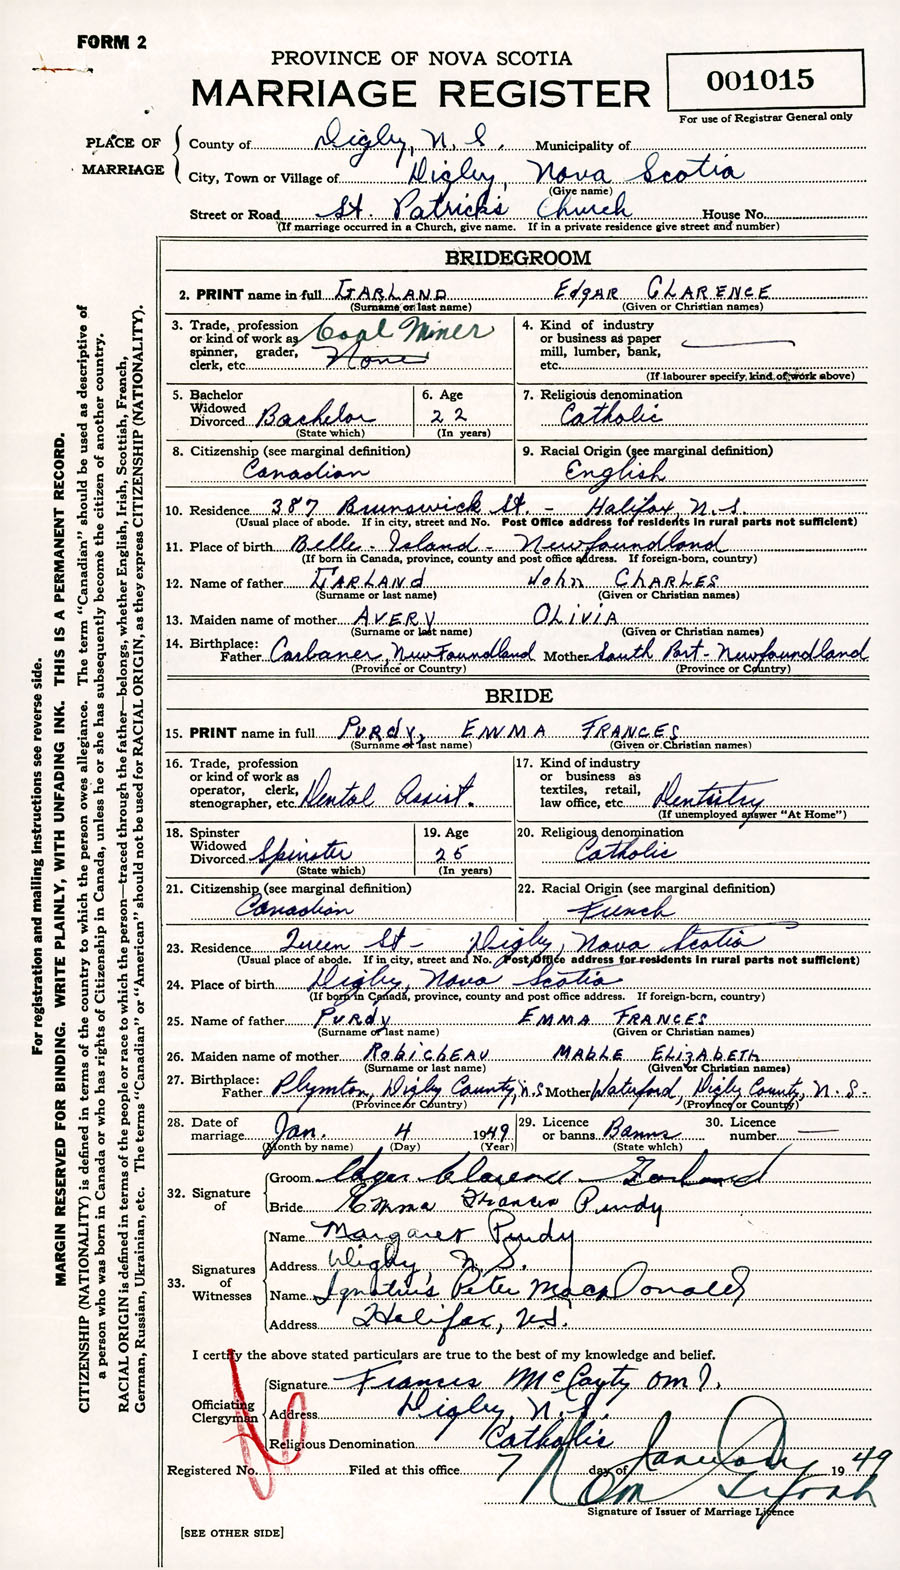 FORM 2
PROVINCE OF NOVA SCOTIA
MARRIAGE REGISTER
001015
For use of Registrar General only
PLACE OF MARRIAGE
County of Digby, N. S. Municipality of
City, Town or Village of Digby, Nova Scotia
(Give name)
Street or Road St. Patricks Church House No.
(If marriage occurred in a Church, give name. If in a private residence give street and number)
BRIDEGROOM
2. PRINT name in full GARLAND EdgAR CLARENCE
(Surname or last name) (Given or Christian names)
3. Trade, profession or kind of work as spinner, grader, clerk, etc. Coal Miner None
4. Kind of industry or business as paper mill, lumber, bank, etc.
(If labourer specify kind of work above)
5. Bachelor Widowed Divorced Bachelor
(State which)
6. Age 22
(In years)
7. Religious denomination
Catholic
8. Citizenship (see marginal definition)
Canadian
9. Racial Origin (see marginal definition)
English
10. Residence 387 Brunswick St. - Halifax, N.S.
(Usual place of abode. If in city, street and No. Post Office address for residents in rural parts not sufficient)
11. Place of birth Belle - Island - Newfoundland
(If born in Canada, province, county and post office address. If foreign-born, country)
12. Name of father GARLAND John CHARLES
(Surname or last name) (Given or Christian names)
13. Maiden name of mother AVERY OLiViA
(Surname or last name) (Given or Christian names)
14. Birthplace:
Father Carbaner, NewFoundland Mother South Port - Newfoundland
(Province or Country) (Province or Country)
BRIDE
15. PRINT name in full PURdy, EMMA FRANCES
(Surname or last name) (Given or Christian names)
16. Trade, profession or kind of work as operator, clerk, stenographer, etc. Dental Assist.
17. Kind of industry or business as textiles, retail, law office, etc. Dentistry
(If unemployed answer "At Home")
18. Spinster Widowed Divorced Spinster
(State which)
19. Age
(In years)
20. Religious denomination
Catholic
21. Citizenship (see marginal definition)
Canadian
22. Racial Origin (see marginal definition)
French
23. Residence Queen St - Digby, Nova Scotia
(Usual place of abode. If in city, street and No. Post Office address for residents in rural parts not sufficient)
24. Place of birth Digby, Nova Scotia
(If born in Canada, province, county and post office address. If foreign-born, country)
25. Name of father PURdy EMMA FRANCES
(Surname or last name) (Given or Christian names)
26. Maiden name of mother RobicheAU MAbLE ELizAbETH
(Surname or last name) (Given or Christian names)
27. Birthplace:
Father Plymton, Digby County, N.S Mother Waterford, Digby County, N. S.
(Province or Country) (Province or Country)
28. Date of marriage Jan. 4 1949
(Month by name) (Day) (Year)
29. Licence or banns Banns
(State which)
30. Licence number
32. Signature of
Groom Edgar Clarence Garland
Bride Emma Frances Purdy
33. Signatures of Witnesses
Name Margaret Purdy
Address Digby, N. S.
Name Ignatius Peter MacDonald
Address Halifax, N.S.
I certify the above stated particulars are true to the best of my knowledge and belief.
Officiating Clergyman
Signature Frances
Address Digby, N.S.
Religious Denomination Catholic
Registered No. Filed at this office 7 day of January 1949
Signature of Issuer of Marriage Licence
[SEE OTHER SIDE]
For registration and mailing instructions see reverse side.
MARGIN RESERVED FOR BINDING. WRITE PLAINLY, WITH UNFADING INK. THIS IS A PERMANENT RECORD.
CITIZENSHIP (NATIONALITY) is defined in terms of the country to which the person owes allegiance. The term "Canadian" should be used as descriptive of
a person who was born in Canada or who has rights of Citizenship in Canada, unless he or she has subsequently become the citizen of another country.
RACIAL ORIGIN is defined in terms of the people or race to which the person—traced through the father—belongs, whether English, Irish, Scottish, French,
German, Russian, Ukrainian, etc. The terms "Canadian" or "American" should not be used for RACIAL ORIGIN, as they express CITIZENSHIP (NATIONALITY).